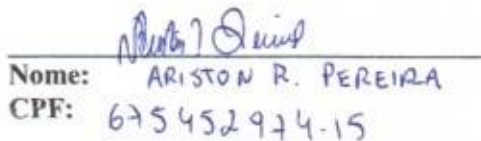 Nome: ARISTON R. PEREIRA
CPF: 675452974-15